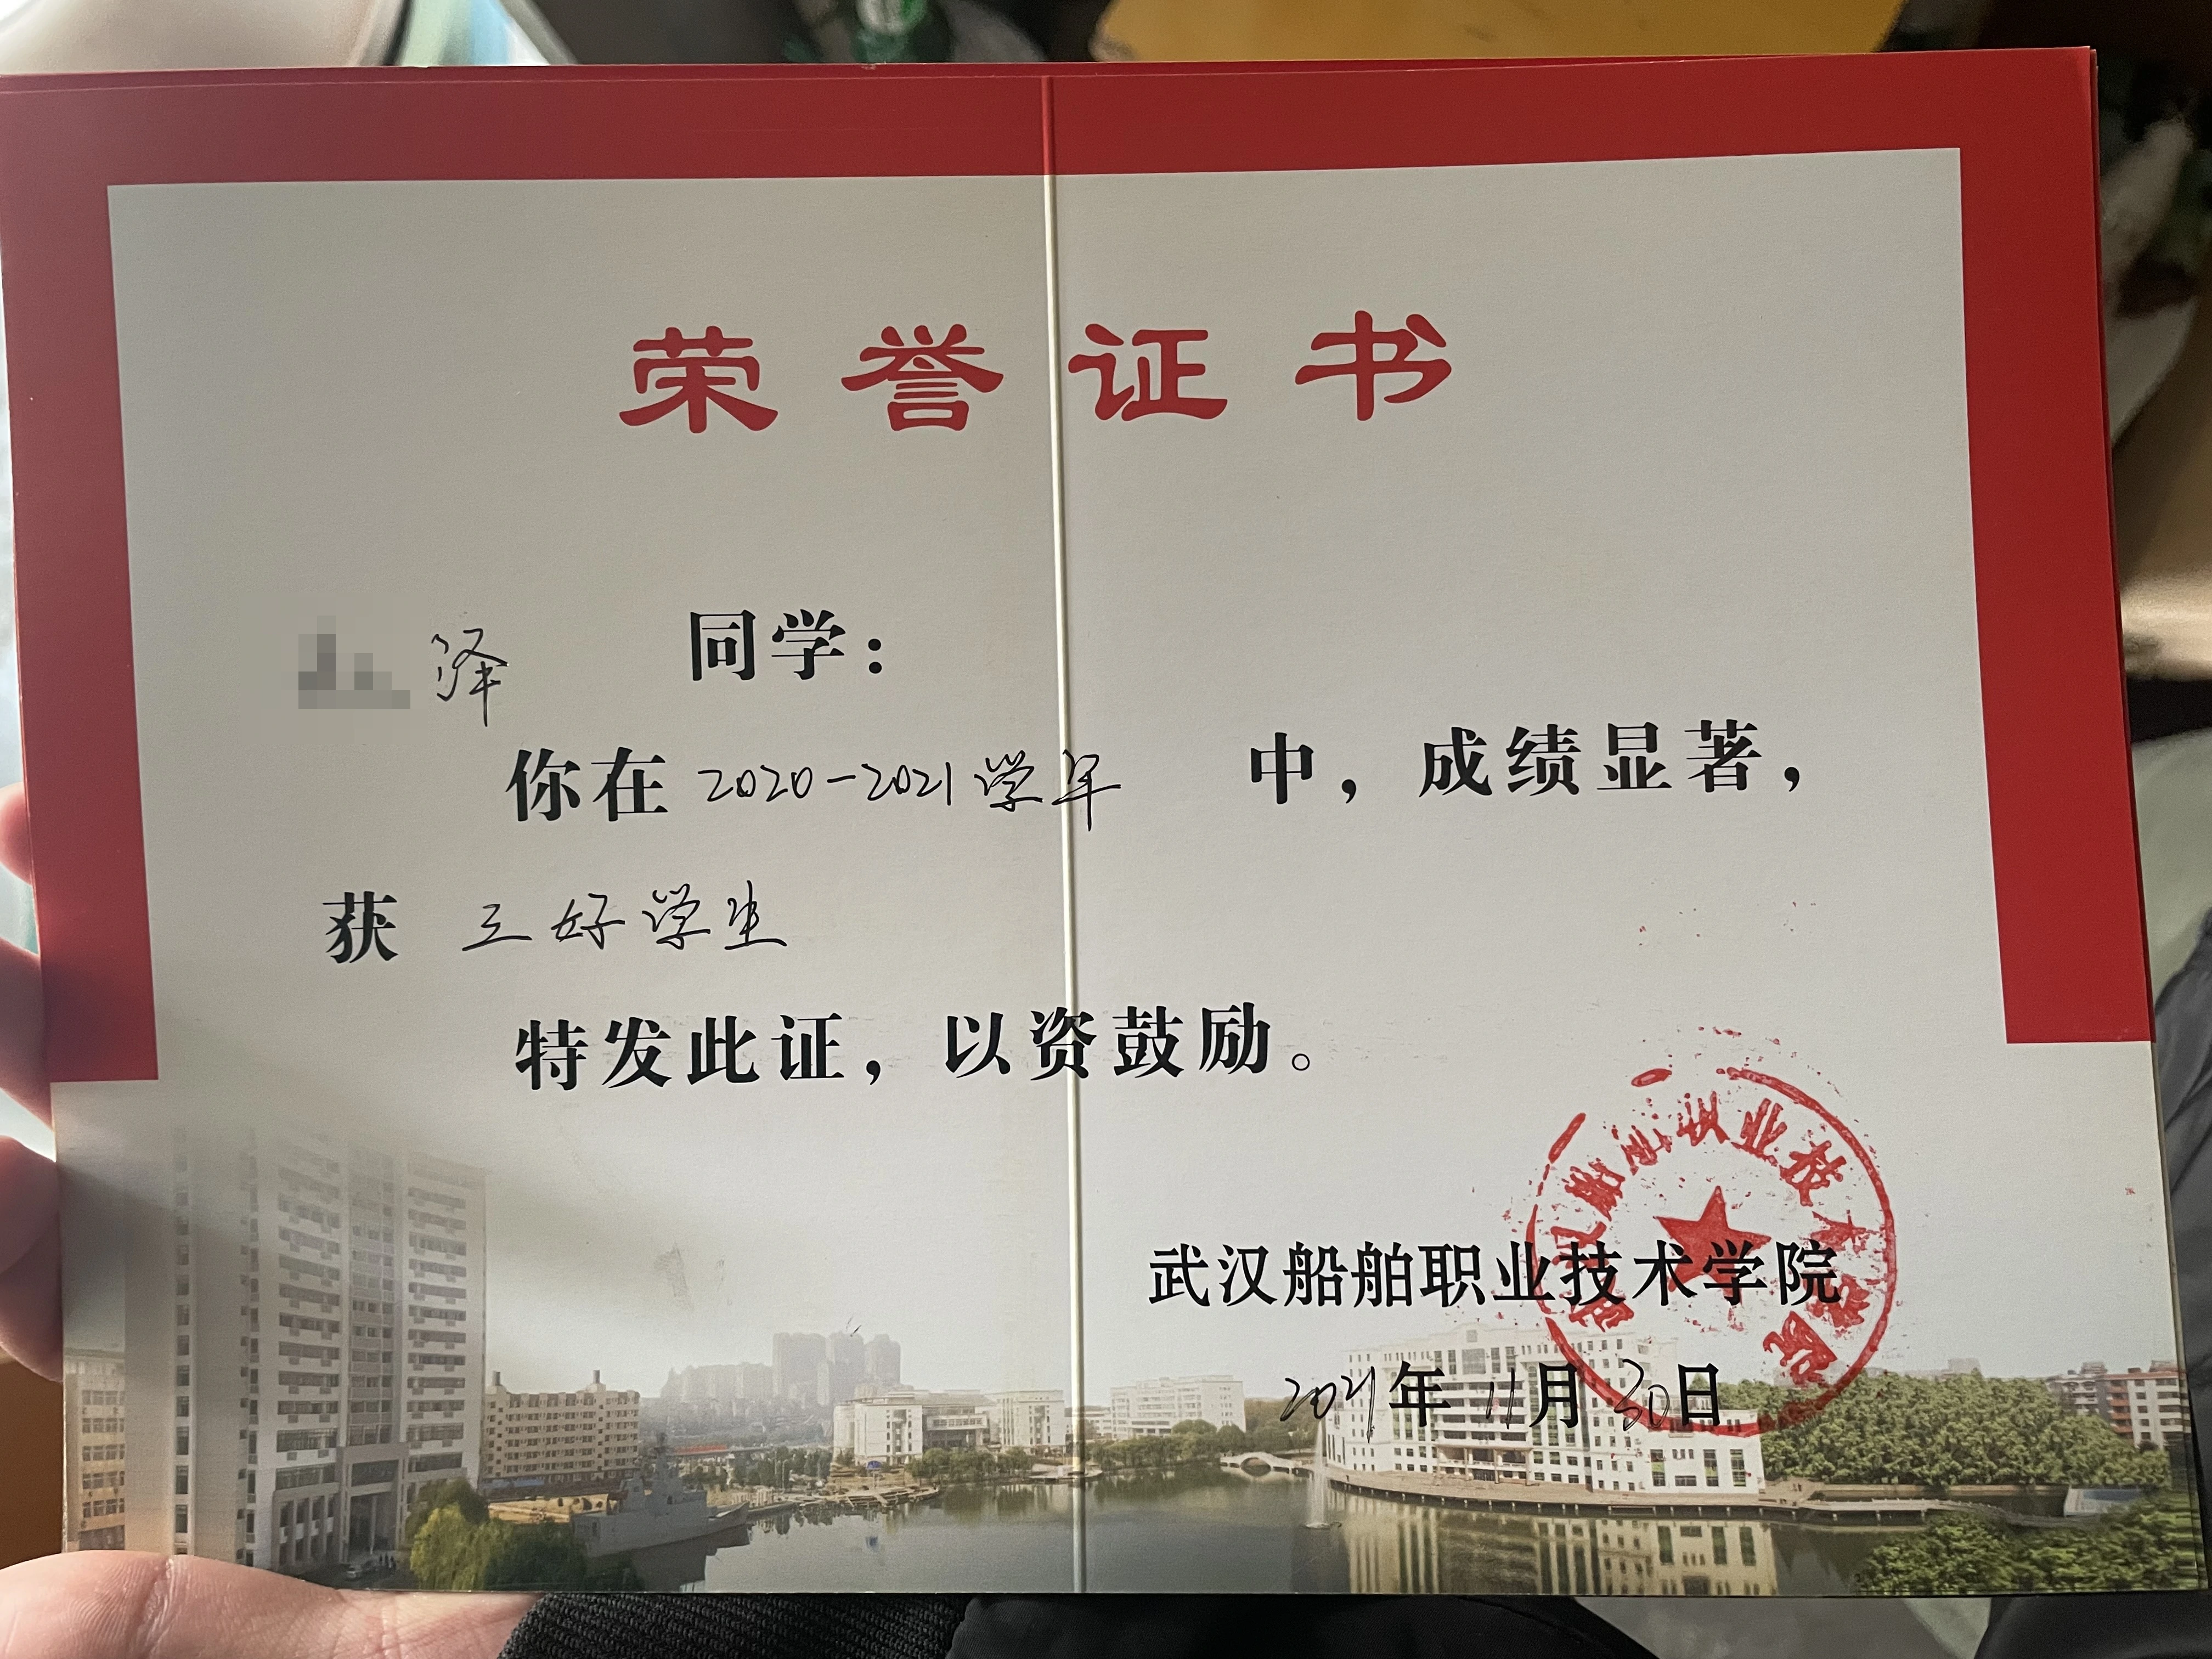 荣誉证书
泽 同学：
你在 2020-2021学年 中，成绩显著，
获 三好学生
特发此证，以资鼓励。
武汉船舶职业技术学院
2021年11月30日